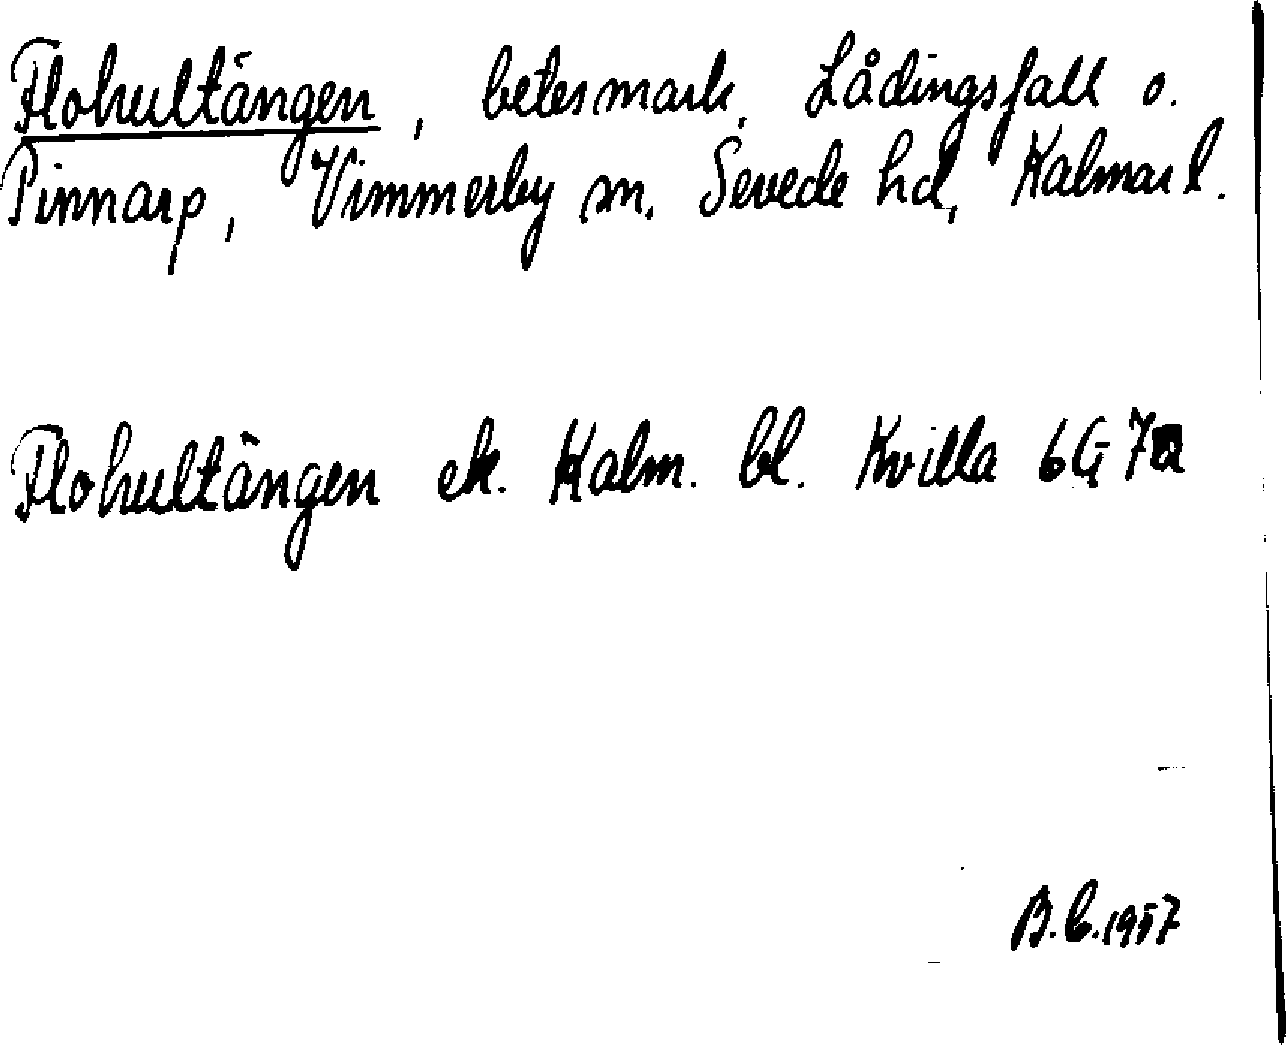 Flohultängen, betesmark, Lådingsfall o.
Pinnarp, Vimmerby sn, Sevede hd, Kalmar l.
Flohultängen ek. Kalm. bl. Kvilla 6G 7a
B.C. 1957